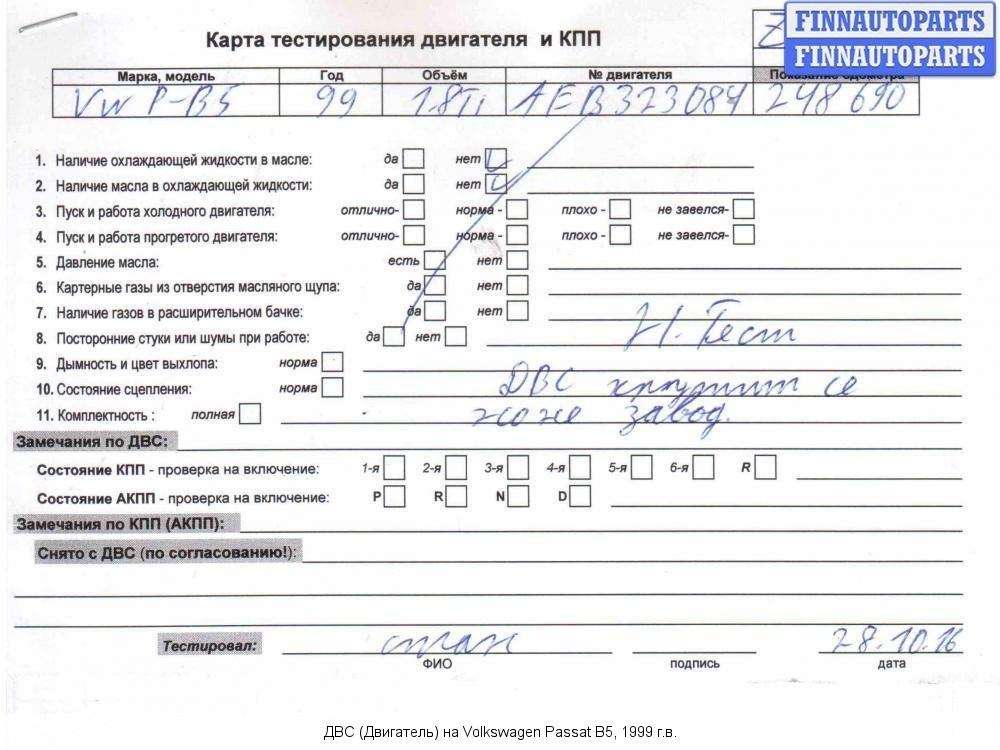 FINNAUTOPARTS
FINNAUTOPARTS
Карта тестирования двигателя и КПП
Марка, модель Год Объём № двигателя Показание одометра
VW P-B5 99 1.8Ti AEB323084 248690
1. Наличие охлаждающей жидкости в масле: да нет
2. Наличие масла в охлаждающей жидкости: да нет
3. Пуск и работа холодного двигателя: отлично- норма - плохо - не завелся-
4. Пуск и работа прогретого двигателя: отлично- норма - плохо - не завелся-
5. Давление масла: есть нет
6. Картерные газы из отверстия масляного щупа: да нет
7. Наличие газов в расширительном бачке: да нет
8. Посторонние стуки или шумы при работе: да нет Н. Тест
9. Дымность и цвет выхлопа: норма
10. Состояние сцепления: норма ДВС крутит се
11. Комплектность : полная же завод.
Замечания по ДВС:
Состояние КПП - проверка на включение: 1-я 2-я 3-я 4-я 5-я 6-я R
Состояние АКПП - проверка на включение: P R N D
Замечания по КПП (АКПП):
Снято с ДВС (по согласованию!):
Тестировал: 28.10.16
ФИО подпись дата
ДВС (Двигатель) на Volkswagen Passat B5, 1999 г.в.